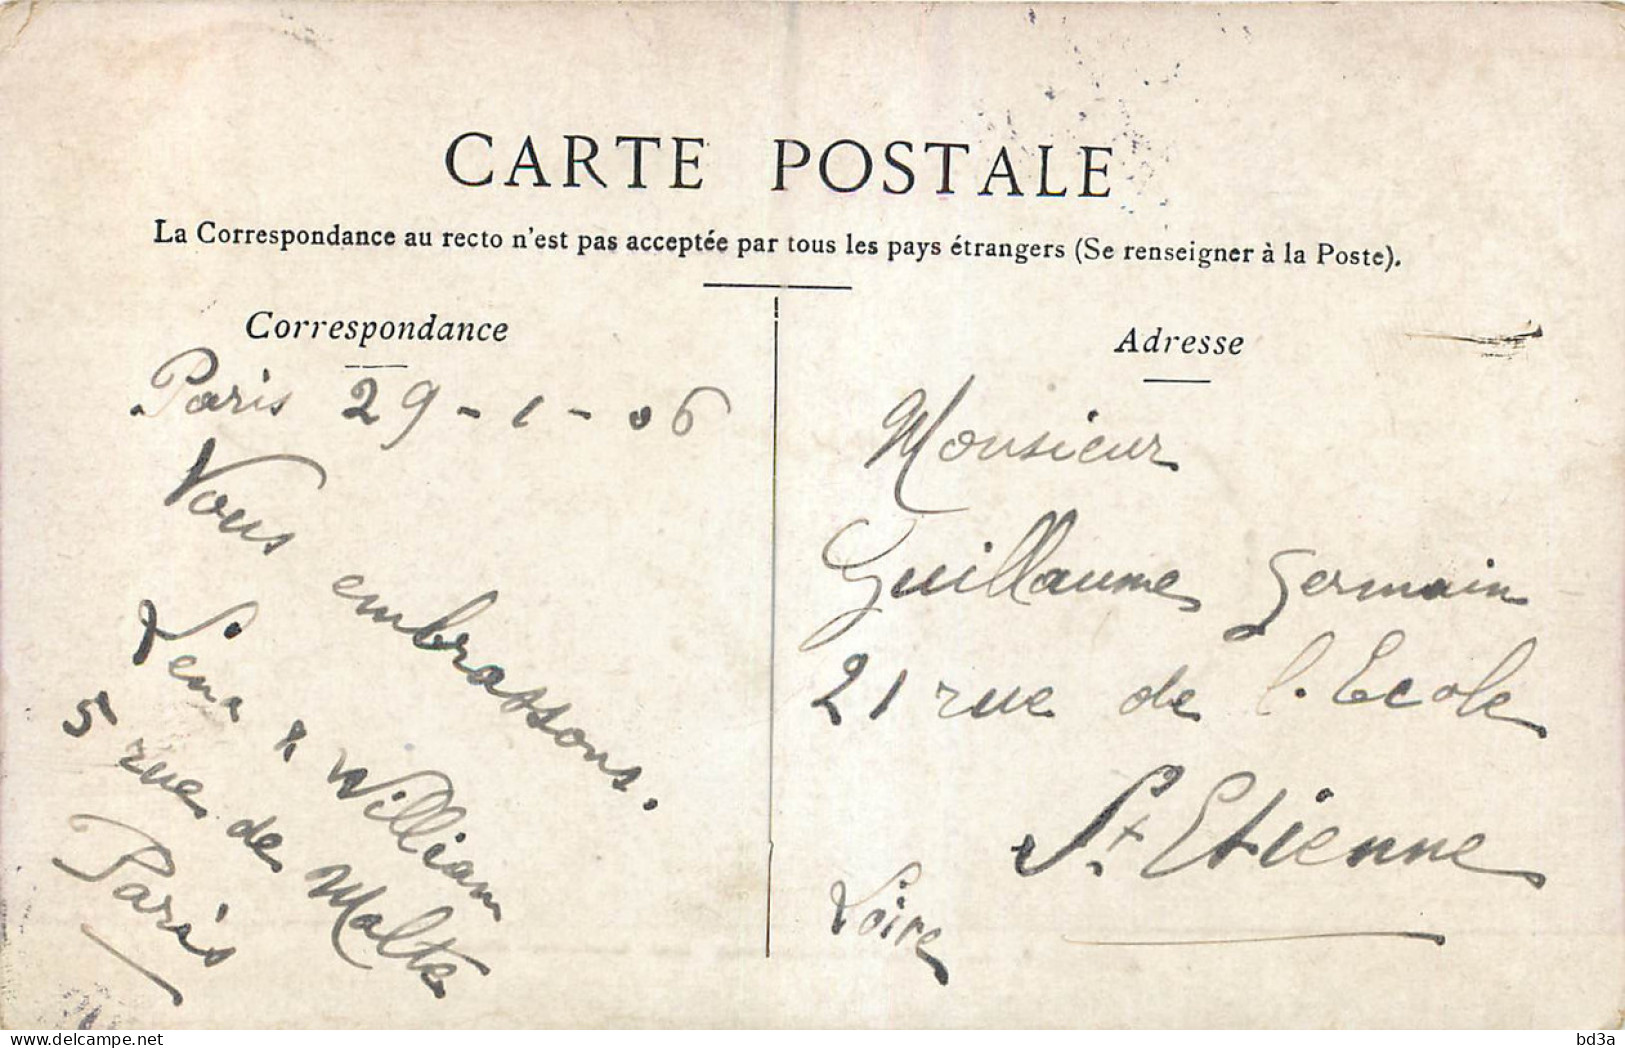 CARTE POSTALE
La Correspondance au recto n'est pas acceptée par tous les pays étrangers (Se renseigner à la Poste).
Correspondance
Paris 29-1-06
Vous embrassons.
Lena & William
5 rue de Malte
Paris
Adresse
Monsieur
Guillaume Germain
21 rue de l'Ecole
St. Etienne
Loire
delcampe.net
bd3a